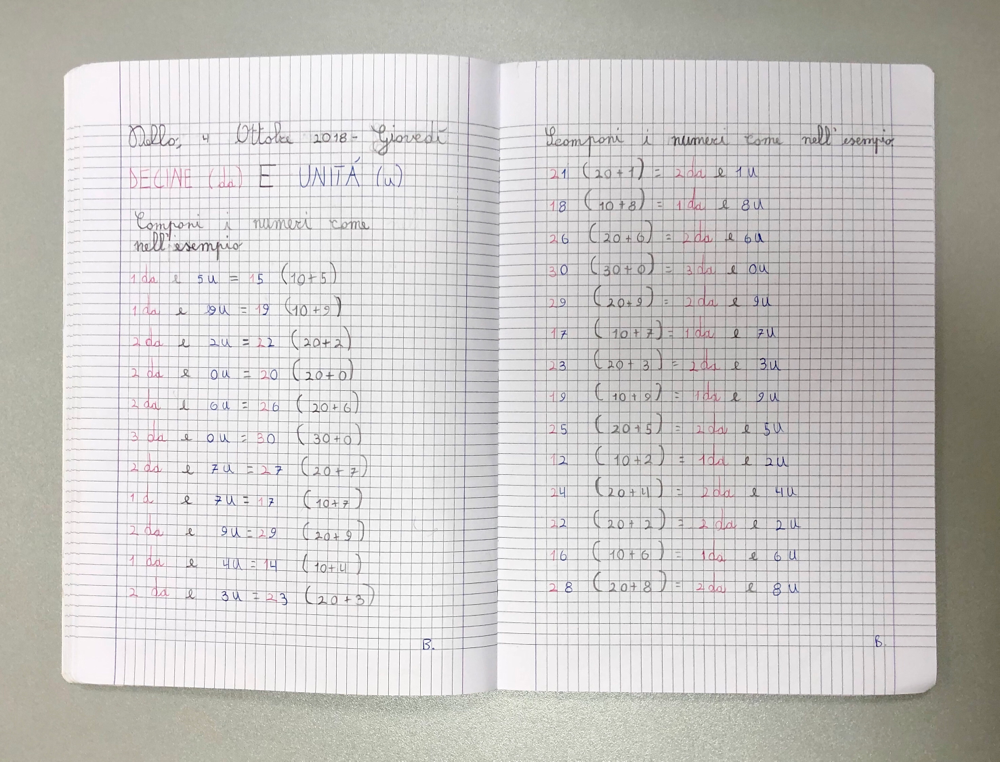 Nello, 4 Ottobre 2018 - Giovedì
DECINE (da) E UNITÁ (u)
Componi i numeri come
nell'esempio
1 da e 5u = 15 (10+5)
1 da e 9u = 19 (10+9)
2 da e 2u = 22 (20+2)
2 da e 0u = 20 (20+0)
2 da e 6u = 26 (20+6)
3 da e 0u = 30 (30+0)
2 da e 7u = 27 (20+7)
1 d e 7u = 17 (10+7)
2 da e 9u = 29 (20+9)
1 da e 4u = 14 (10+4)
2 da e 3u = 23 (20+3)
B.
Scomponi i numeri come nell'esempio
21 (20+1) = 2 da e 1u
18 (10+8) = 1 da e 8u
26 (20+6) = 2 da e 6u
30 (30+0) = 3 da e 0u
29 (20+9) = 2 da e 9u
17 (10+7) = 1 da e 7u
23 (20+3) = 2 da e 3u
19 (10+9) = 1 da e 9u
25 (20+5) = 2 da e 5u
12 (10+2) = 1 da e 2u
24 (20+4) = 2 da e 4u
22 (20+2) = 2 da e 2u
16 (10+6) = 1 da e 6u
28 (20+8) = 2 da e 8u
B.